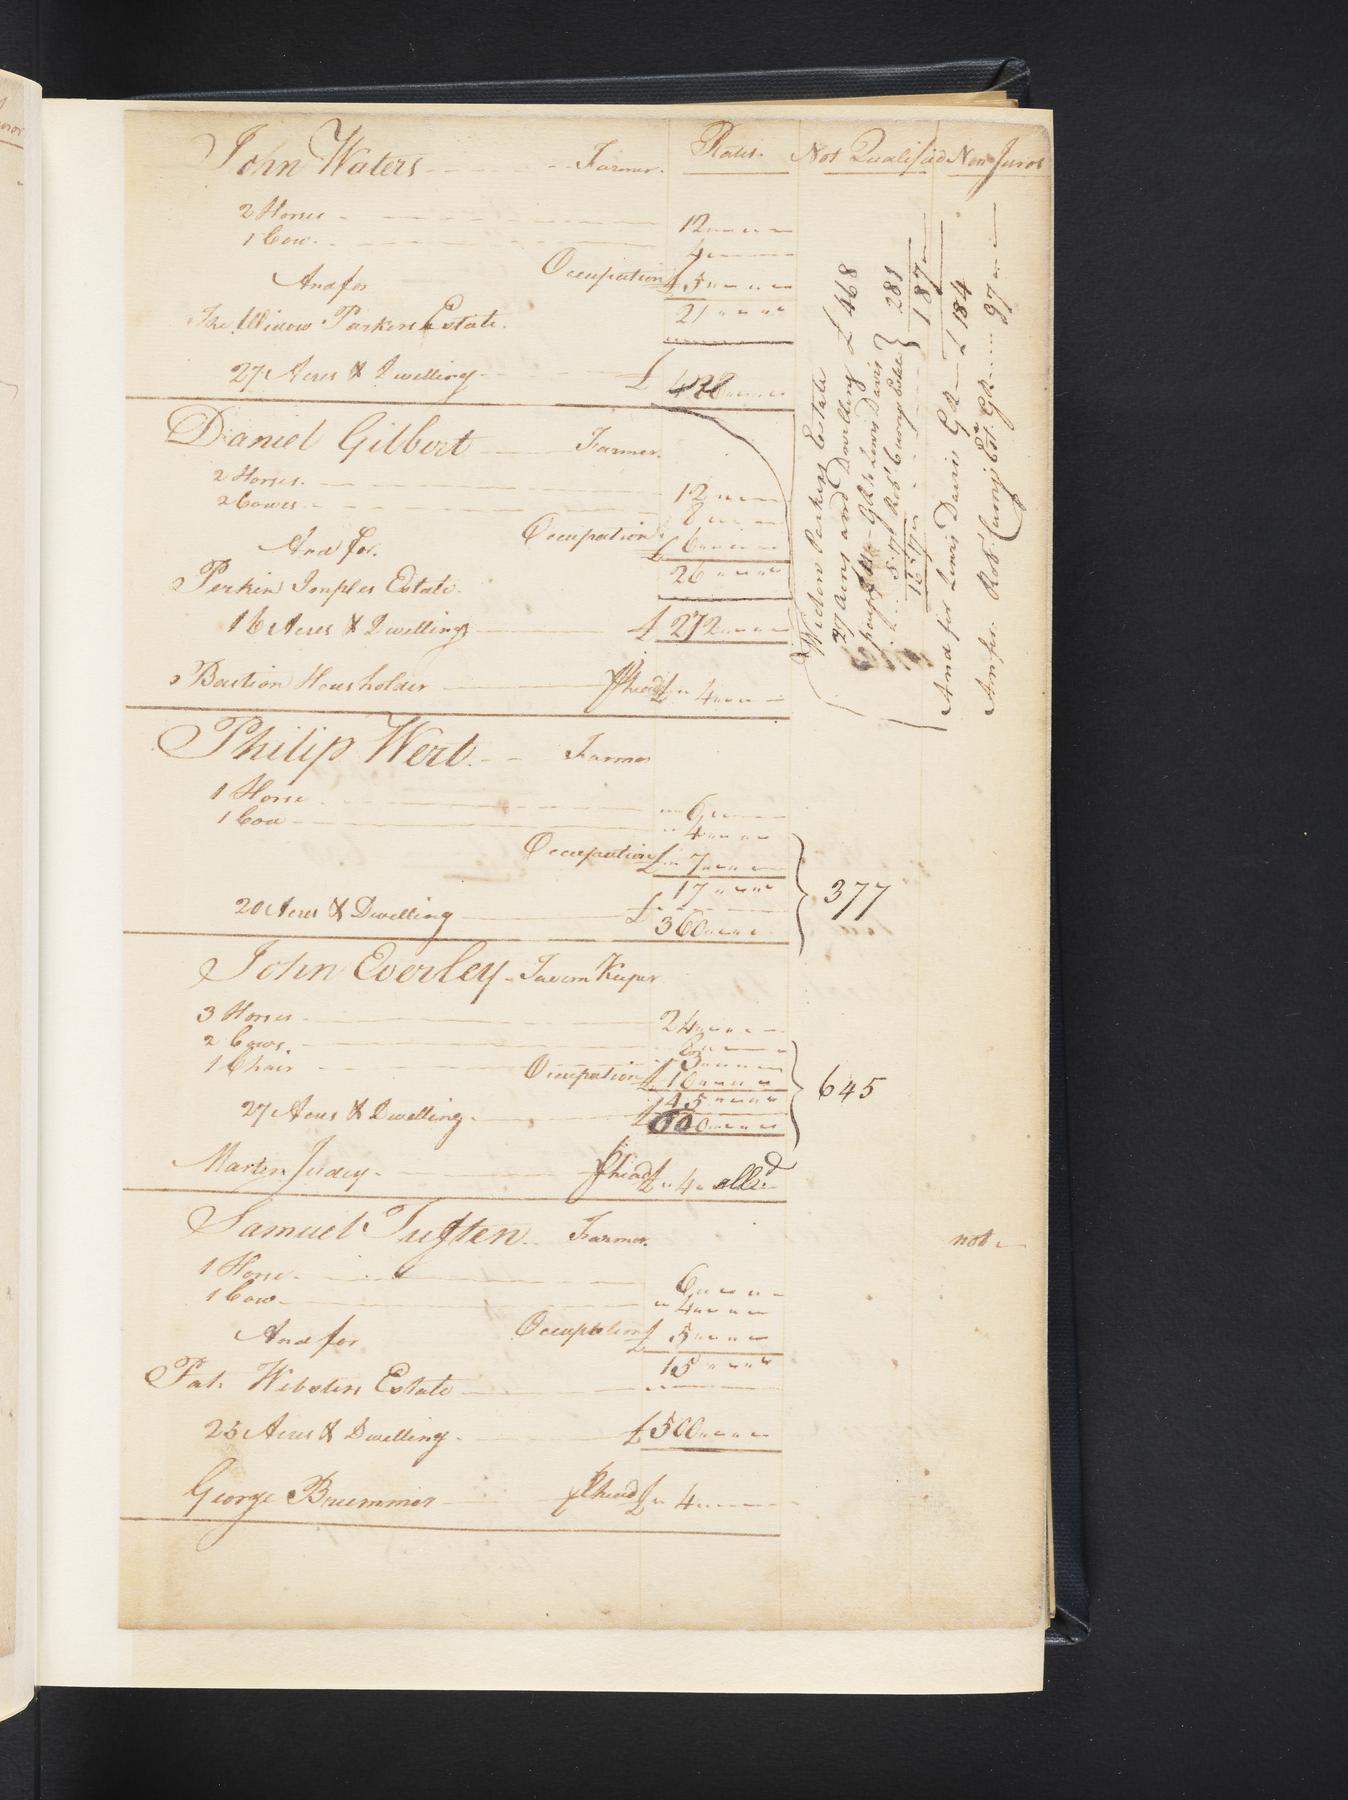 Rates. Not Qualified Non Juror
John Waters Farmer.
2 Horses 12
1 Cow 4
And for Occupation £ 5
21
The Widow Parkers Estate.
27 Acres & Dwelling £
Daniel Gilbert Farmer.
2 Horses. 12
2 Cowes 8
And for. Occupation. £ 6
26
Perkin Estate.
16 Acres & Dwelling £ 272
Bastion Housholder head £ 4
Philip Wert. Farmer
1 Horse 6
1 Cow 4
Occupation £ 7
17
20 Acres & Dwelling £ 360
377
John Everley Tavern Keeper
3 Horses 24
2 Cows. 8
1 Chair 3
Occupation £ 10
45
27 Acres & Dwelling £ 600
645
Martin head £ 4
Samuel Tuften Farmer. not
1 Horse. 6
1 Cow 4
And for Occupation £ 5
15
Pat. Websters Estate
25 Acres & Dwelling £ 500
George head £ 4
Widow Parkers Estate
27 Acres and Dwelling £ 468
Lewis Davis 281
187
And for Lewis Davis £ 184
97